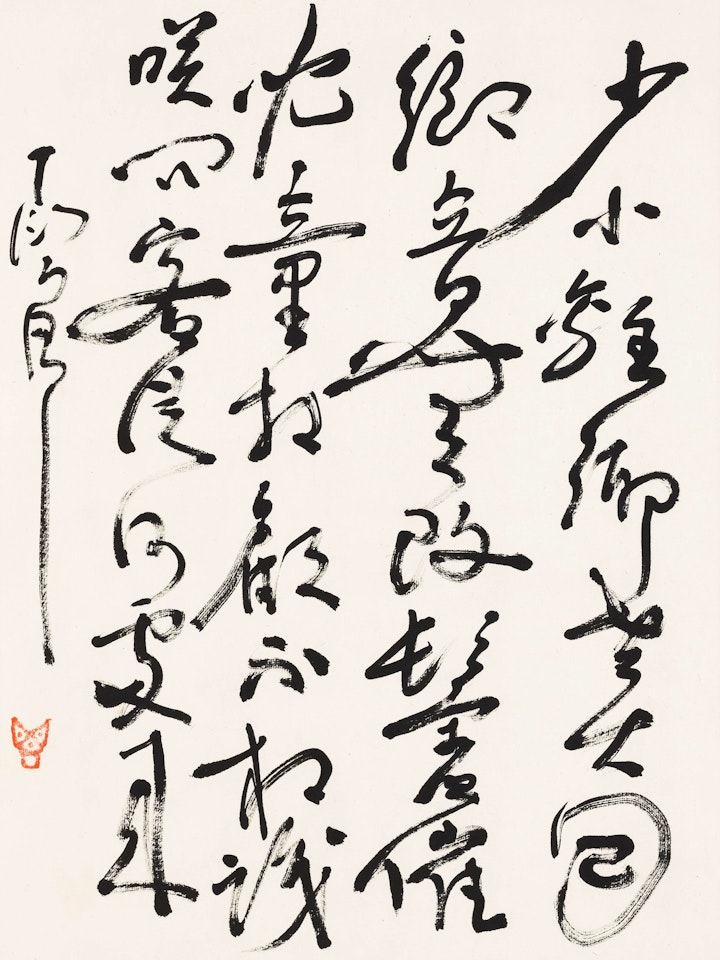 少小離鄉老大回
鄉音無改鬢毛催
兒童相顧不相識
咲問客從何處來
丁衍庸